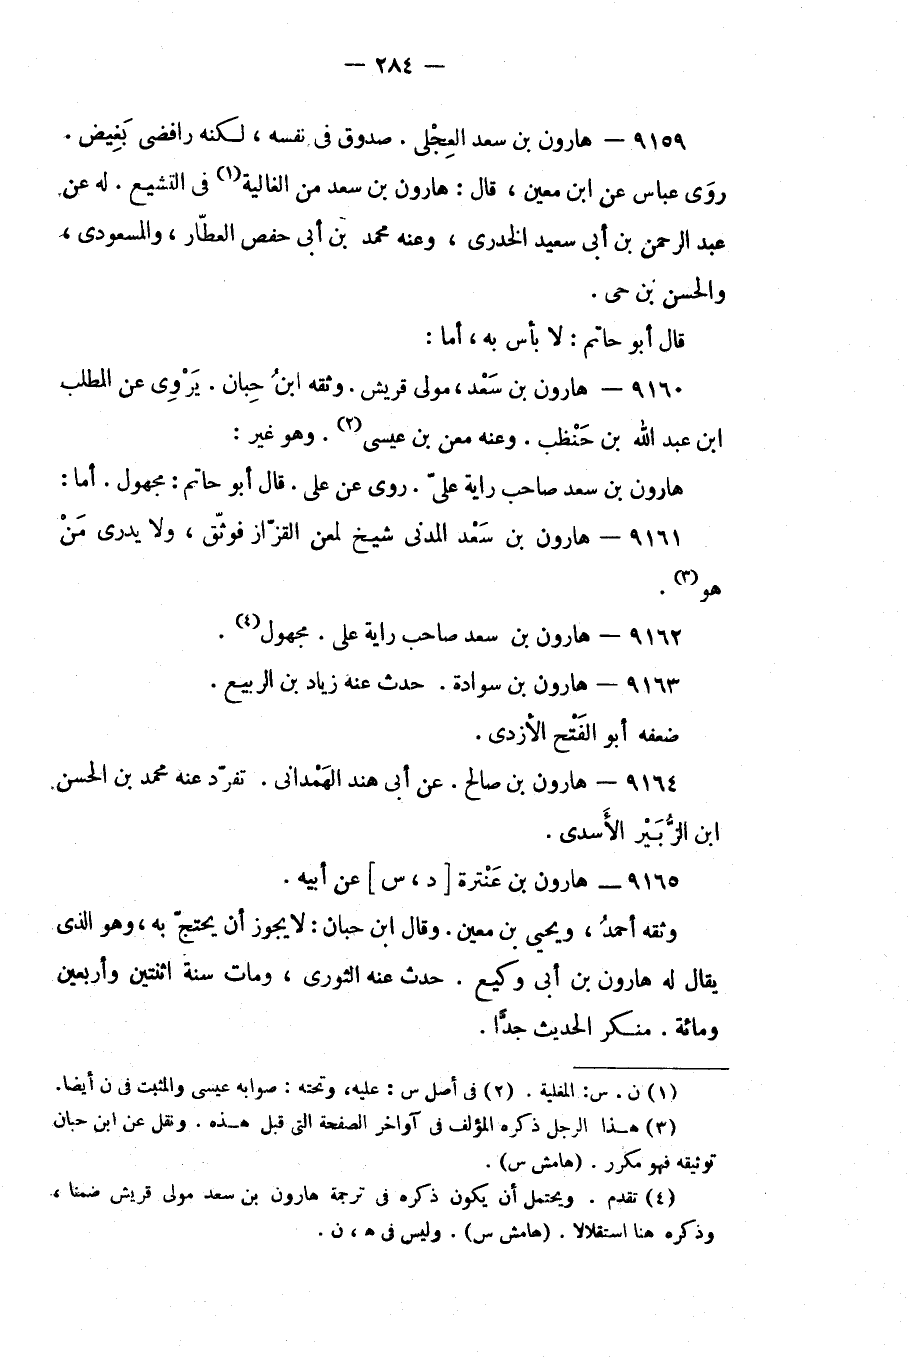 — ٢٨٤ —
٩١٥٩ — هارون بن سعد العِجْلى . صدوق فى نفسه ، لكنه رافضى بَغِيض .
روَى عباس عن ابن معين ، قال : هارون بن سعد من الغالية(١) فى التشيع . له عن
عبد الرحمن بن أبى سعيد الخدرى ، وعنه محمد بن أبى حفص العطّار ، والمسعودى ،
والحسن بن حى .
قال أبو حاتم : لا بأس به ، أما :
٩١٦٠ — هارون بن سَعْد ، مولى قريش . وثقه ابنُ حِبان . يَرْوِى عن المطلب
ابن عبد الله بن حَنْطَب . وعنه معن بن عيسى(٢) . وهو غير :
هارون بن سعد صاحب راية علىّ . روى عن على . قال أبو حاتم : مجهول . أما :
٩١٦١ — هارون بن سَعْد المدنى شيخ لمعن القزّاز فوثّق ، ولا يدرى مَنْ
هو(٣) .
٩١٦٢ — هارون بن سعد صاحب راية على . مجهول(٤) .
٩١٦٣ — هارون بن سوادة . حدث عنه زياد بن الربيع .
ضعفه أبو الفَتْح الأزدى .
٩١٦٤ — هارون بن صالح . عن أبى هند الهَمْدانى . تفرّد عنه محمد بن الحسن
ابن الزُّبَيْر الأَسدى .
٩١٦٥ — هارون بن عَنْترة [ د ، س ] عن أبيه .
وثقه أحمدُ ، ويحيى بن معين . وقال ابن حبان : لا يجوز أن يحتجّ به ، وهو الذى
يقال له هارون بن أبى وكيع . حدث عنه الثورى ، ومات سنة اثنتين وأربعين
ومائة . منكر الحديث جدًّا .
(١) ن . س : المغلية . (٢) فى أصل س : عليه، وتحته : صوابه عيسى والمثبت فى ن أيضا.
(٣) هذا الرجل ذكره المؤلف فى آواخر الصفحة التى قبل هذه . ونقل عن ابن حبان
توثيقه فهو مكرر . (هامش س) .
(٤) تقدم . ويحتمل أن يكون ذكره فى ترجمة هارون بن سعد مولى قريش ضمنا ،
وذكره هنا استقلالا . (هامش س) . وليس فى ه ، ن .